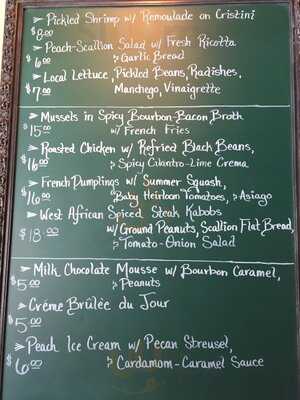 ➤ Pickled Shrimp w/ Remoulade on Cristini
$8.00
➤ Peach-Scallion Salad w/ Fresh Ricotta
$6.00 & Garlic Bread
➤ Local Lettuce, Pickled Beans, Radishes,
$7.00 Manchego, Vinaigrette
➤ Mussels in Spicy Bourbon-Bacon Broth
$15.00 w/ French Fries
➤ Roasted Chicken w/ Refried Black Beans,
$16.00 & Spicy Cilantro-Lime Crema
➤ French Dumplings w/ Summer Squash,
$16.00 Baby Heirloom Tomatoes, & Asiago
➤ West African Spiced Steak Kabobs
$18.00 w/ Ground Peanuts, Scallion Flat Bread,
& Tomato-Onion Salad
➤ Milk Chocolate Mousse w/ Bourbon Caramel,
$5.00 & Peanuts
➤ Créme Brûlée du Jour
$5.00
➤ Peach Ice Cream w/ Pecan Streusel,
$6.00 & Cardamom-Caramel Sauce